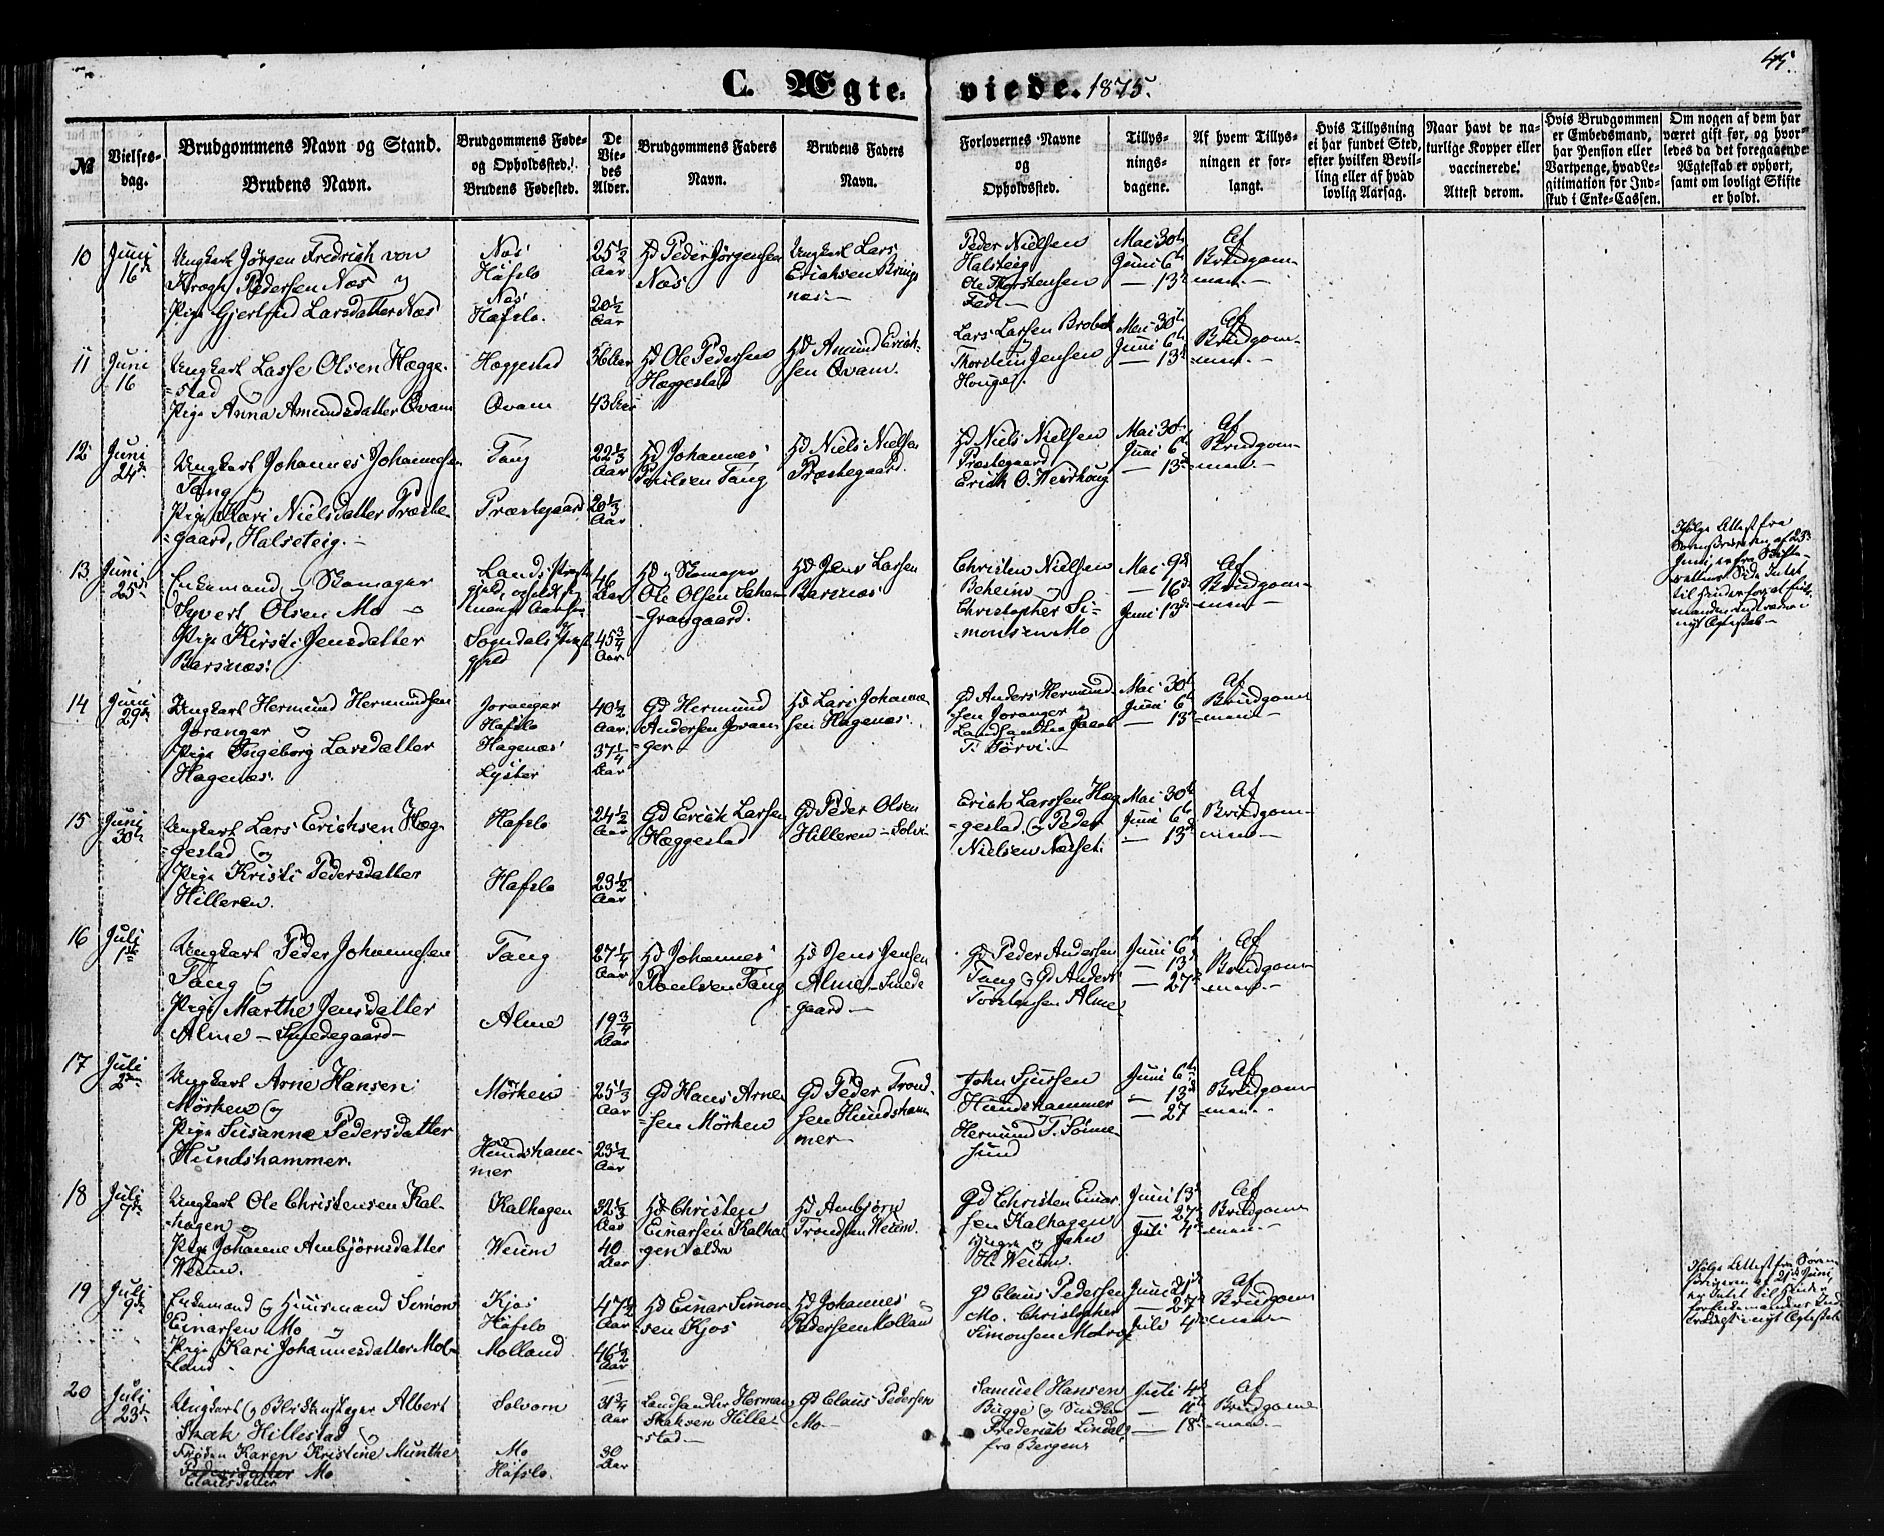 45.
C. Ægte- viede. 1875.
№
Vielses-
dag.
Brudgommens Navn og Stand.
Brudens Navn.
Brudgommens Føde-
og Opholdssted.
Brudens Fødested.
De
Vie-
des
Alder.
Brudgommens Faders
Navn.
Brudens Faders
Navn.
Forlovernes Navne
og
Opholdssted.
Tillys-
nings-
dagene.
Af hvem Tillys-
ningen er for-
langt.
Hvis Tillysning
ei har fundet Sted,
efter hvilken Bevil-
ling eller af hvad
lovlig Aarsag.
Naar havt de na-
turlige Kopper eller
vaccinerede.
Attest derom.
Hvis Brudgommen
er Embedsmand,
har Pension eller
Vartpenge, hvad Le-
gitimation for Ind-
skud i Enke-Cassen.
Om nogen af dem har
været gift før, og hvor-
ledes da det foregaaende
Ægteskab er ophørt,
samt om lovligt Skifte
er holdt.
10 Juni 16de
Ungkarl Jørgen Fredrich von
Krogh Pedersen Næs og
Pige Gjertrud Larsdatter Næs
Næs
Hafslo
Næs
Hafslo.
25½ Aar
20½ Aar
Peder Jørgensen
Næs
Ungkarl Lars
Erichsen Brings
næs
Peder Nielsen
Halsteig
Ole Thorstensen
Fedt
Mai 30te
Juni 6te
— 13de
Af
Brudgom-
men.
11 Juni 16
Ungkarl Lasse Olsen Hægge-
stad og
Pige Anna Amundsdatter Qvam
Heggestad
Qvam
36 Aar
43 Aar
Ole Pedersen
Heggestad
Amund Erich-
sen Qvam.
Lars Larssen
Thorstein Jensen
Mai 30te
Juni 6te
— 13de
Af
Brudgom-
men.
12 Juni 24de
Ungkarl Johannes Johannessen
Tang og
Pige Kari Nielsdatter Præste-
gaard, Halsteig.
Tang
Præstegaard
22⅓ Aar
20⅓ Aar
Johannes
Poulsen Tang
Niels Nielsen
Præstegaard.
Niels Nielsen
Præstegaard
Erich O.
Mai 30te
Juni 6te
— 13de
Af
Brudgom-
men.
13 Juni 25de
Enkemand og Skomager
Syvert Olsen Mo og
Pige Kirsti Jensdatter
Barsnæs.
Sogndals Præste
gjeld
46 Aar
45¾ Aar
Skomager
Ole Olsen
Jens Larsen
Barsnæs
Christen Nielsen
Beheim og
Christopher Si-
monsen Mo
Mai 9de
— 16de
Juni 13de
Af
Brudgom-
men.
Ifølge Attest fra
Sorenskriveren af 23de
Juni, er fra Skifte-
rettens Side Intet
til Hinder for at Enke-
manden indtræder i
nyt Ægteskab
14 Juni 29de
Ungkarl Hermund Hermundsen
Joranger og
Pige Ingeborg Larsdatter
Hagenæs.
Joranger
Hafslo
Hagenæs
Lyster
40½ Aar.
37¼ Aar
Gd Hermund
Andersen Joran-
ger
Lars Johanne-
sen Hagenæs.
Gd Anders Hermund-
sen Joranger og
Landhandler Jacob
T. Tørvi.
Mai 30te
Juni 6te
— 13de
Af
Brudgom-
men.
15 Juni 30te
Ungkarl Lars Erichsen Hæg-
gestad og
Pige Kristi Pedersdatter
Hilleren.
Hafslo
Hafslo
24½ Aar
23½ Aar
Gd Erich Larsen
Hæggestad
Gd Peder Olsen
Hilleren
Erich Larssen Hæg-
gestad og Peder
Nielsen
Mai 30te
Juni 6te
— 13de
Af
Brudgom-
men.
16 Juli 1ste
Ungkarl Peder Johannessen
Tang og
Pige Marthe Jensdatter
Alme — Smedegaard
Tang
Alme
27¼ Aar
19¾ Aar
Johannes
Poulsen Tang
Jens Jensen
Alme — Smede
gaard
Gd Peder Andersen
Tang og Gd Anders
Torstensen Alme
Juni 6te
— 13de
— 27de
Af
Brudgom-
men.
17 Juli 2den
Ungkarl Arne Hansen
Mörken og
Pige Susanne Pedersdatter
Hundshammer.
Mörken
Hundsham-
mer
25⅓ Aar
23½ Aar
Gd Hans Arne-
sen Mörken
Gd Peder Trond-
sen Hundsham-
mer
John Sjursen
Hundshammer
Hermund T. Sønne-
sund
Juni 6te
— 13de
— 27
Af
Brudgom-
men.
18 Juli 7de
Ungkarl Ole Christensen Kal-
hagen og
Pige Johanne Ambjørnsdatter
Weum.
Kalhagen
Weum
32⅓ Aar
40 Aar
Christen
Einarsen Kalha-
gen ældre
Ambjørn
Trondsen Weum.
Gd Christen Einar-
sen Kalhagen
yngre og John
H. Weum.
Juni 13de
— 27de
Juli 4de
Af
Brudgom-
men.
19 Juli 9de
Enkemand og Huusmand Simon
Einarsen Mo og
Pige Kari Johannesdatter Mol-
land
Kjos
Hafslo
Molland
47½ Aar
46½ Aar
Einar Simon-
sen Kjos
Johannes
Pedersen Molland
Gd Claus Pedersen
Mo. Christopher
Simonsen Mo
Juni
— 27de
Juli 4de
Af
Brudgom-
men.
Ifølge Attest fra Soren-
skriveren af Juni,
er Intet til Hinder
for Enkemandens Ind-
trædelse i nyt Ægteskab
20 Juli 23de
Ungkarl og Blikkenslager Albert
Isaak Hillestad og
Frøken Karen Kristine Munthe
Pedersdatter Mo
Clausdatter
Solvorn
Mo
Hafslo
31¾ Aar
30 Aar
Landhandler Herman
Isaksen Hille-
stad
Gd Claus Pedersen
Mo
Samuel Hansen
Bugge og
Frederick Lindal
fra Bergen
Juli 4de
— 11te
— 18de
Af
Brudgom-
men.